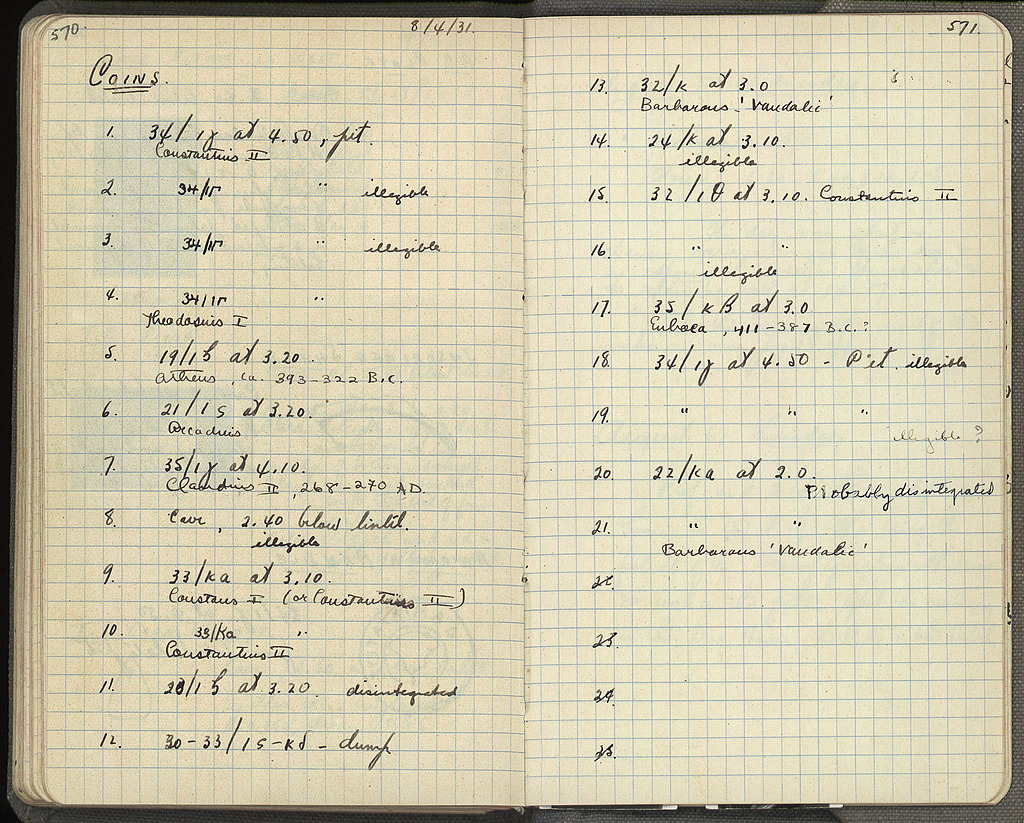 570
8/4/31.
COINS.
1. 34/ιγ at 4.50, pit.
Constantius II
2. 34/ιγ " illegible
3. 34/ιγ " illegible
4. 34/ιγ "
Theodosius I
5. 19/ιϛ at 3.20.
Athens, ca. 393-322 B.C.
6. 21/ιϛ at 3.20.
Arcadius
7. 35/ιγ at 4.10.
Claudius II, 268-270 A.D.
8. Cave, 2.40 below lintel.
illegible
9. 33/κα at 3.10.
Constans I (or Constantius II)
10. 33/κα "
Constantius II
11. at 3.20. disintegrated
12. 30-33/ιϛ-κδ - dump
571.
13. 32/κ at 3.0
Barbarous - 'Vandalic'
14. 24/κ at 3.10.
illegible
15. 32/ιθ at 3.10. Constantius II
16. " "
illegible
17. 35/κβ at 3.0
Euboea, 411-387 B.C.?
18. 34/ιγ at 4.50 - Pit. illegible
19. " " "
illegible ?
20. 22/κα at 2.0.
Probably disintegrated
21. " "
Barbarous 'Vandalic'
22.
23.
24.
25.